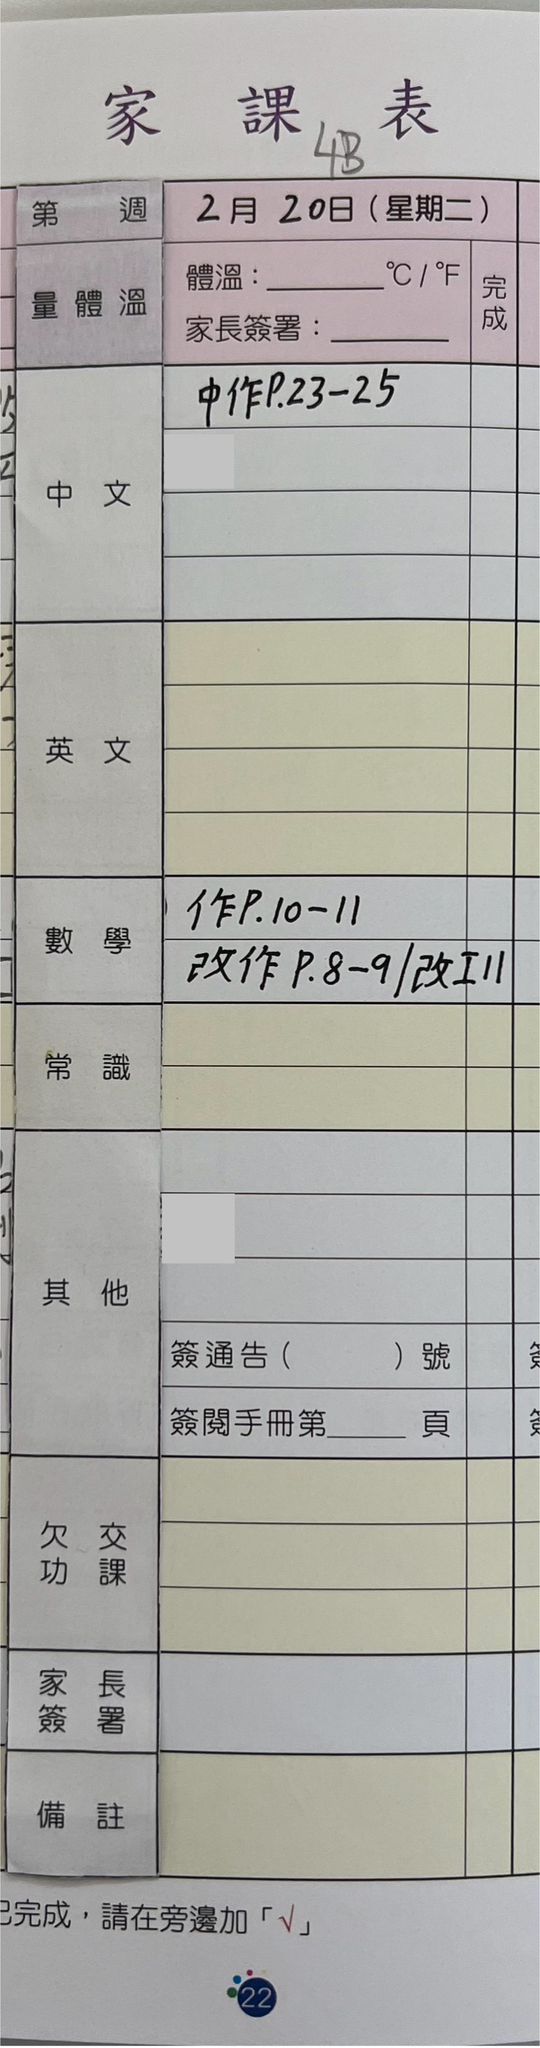 家課表
4B
第 週
2月20日(星期二)
量體溫
體溫:________°C/°F
家長簽署:________
完成
中文
中作P.23-25
英文
數學
作P.10-11
改作P.8-9/改工11
常識
其他
簽通告( )號
簽閱手冊第_____頁
欠交功課
家長簽署
備註
已完成,請在旁邊加「√」
22